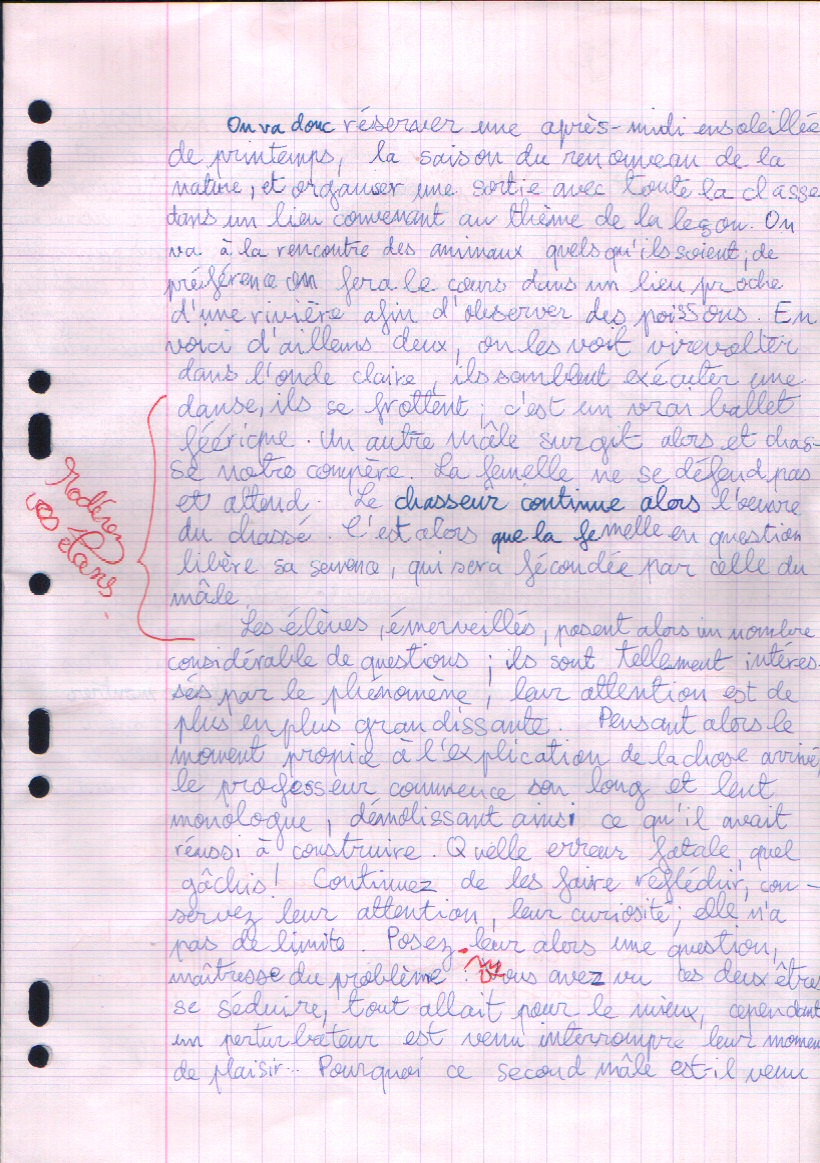 On va donc réserver une après-midi ensoleillée
de printemps, la saison du renouveau de la
nature, et organiser une sortie avec toute la classe
dans un lieu convenant au thème de la leçon. On
va à la rencontre des animaux quels qu'ils soient, de
préférence on fera le cours dans un lieu proche
d'une rivière afin d'observer des poissons. En
voici d'ailleurs deux, on les voit virevolter
dans l'onde claire, ils semblent exécuter une
danse, ils se frottent ; c'est un vrai ballet
féérique. Un autre mâle surgit alors et chas-
se notre compère. La femelle ne se défend pas
et attend. Le chasseur continue alors l'oeuvre
du chassé. C'est alors que la femelle en question
libère sa semence, qui sera fécondée par celle du
mâle.
Modérez
vos élans.
Les élèves, émerveillés, posent alors un nombre
considérable de questions ; ils sont tellement intéres-
sés par le phénomène, leur attention est de
plus en plus grandissante. Pensant alors le
moment propice à l'explication de la chose arrivé,
le professeur commence son long et lent
monologue, démolissant ainsi ce qu'il avait
réussi à construire. Quelle erreur fatale, quel
gâchis! Continuez de les faire réfléchir, con-
servez leur attention, leur curiosité ; elle n'a
pas de limite. Posez-leur alors une question,
maîtresse du problème : vous avez vu ces deux êtres
se séduire, tout allait pour le mieux, cependant
un perturbateur est venu interrompre leur moment
de plaisir... Pourquoi ce second mâle est-il venu